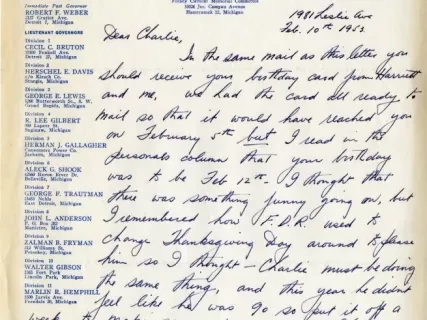 Immediate Past Governor
ROBERT F. WEBER
Detroit 7, Michigan
LIEUTENANT GOVERNORS
Division 1
CECIL C. BRUTON
Detroit 27, Michigan
Division 2
HERSCHEL E. DAVIS
Sturgis, Michigan
Division 3
GEORGE E. LEWIS
Grand Rapids, Michigan
Division 4
R. LEE GILBERT
Saginaw, Michigan
Division 5
HERMAN J. GALLAGHER
Consumers Power Co.
Jackson, Michigan
Division 6
ALECK G. SHOOK
Belleville, Michigan
Division 7
GEORGE F. TRAUTMAN
East Detroit, Michigan
Division 8
JOHN L. ANDERSON
P. O. Box
Manistee, Michigan
Division 9
ZALMAN B. FRYMAN
Petoskey, Michigan
Division 10
WALTER GIRSON
Lincoln Park, Michigan
Division 11
MARLIN R. HEMPHILL
1100 Jarvis Ave.
Ferndale 20, Michigan
Hamtramck 12, Michigan
1981 Leslie Ave
Feb. 10th 1953
Dear Charlie,
In the same mail as this letter you
should receive your birthday card from Harriett
and me. We had the card all ready to
mail so that it would have reached you
on February 5th but I read in the
personals column that your birthday
was to be Feb 12th - I thought that
there was something funny going on, but
I remembered how F.D.R. used to
change Thanksgiving Day around to please
him so I thought - Charlie must be doing
the same thing, and this year he didn't
feel like he was 90 so put it off a
week to